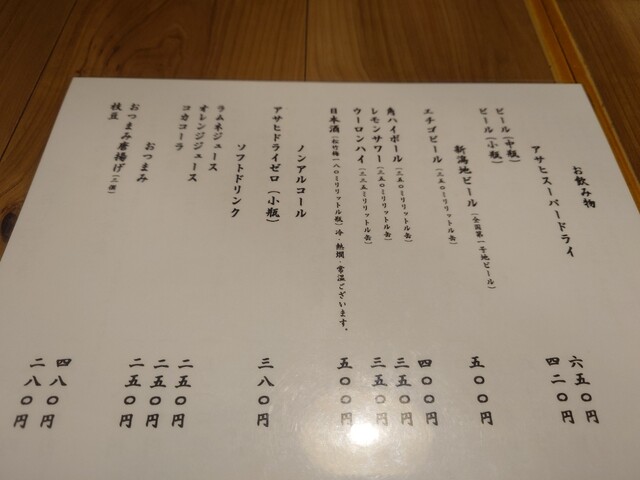 お飲み物
アサヒスーパードライ
ビール(中瓶) 六五〇円
ビール(小瓶) 四二〇円
新潟地ビール(全国第一号地ビール)
エチゴビール(三五〇ミリリットル缶) 五〇〇円
角ハイボール(三五〇ミリリットル缶) 四〇〇円
レモンサワー(三五〇ミリリットル缶) 三五〇円
ウーロンハイ(三三五ミリリットル缶) 三五〇円
日本酒(松竹梅一八〇ミリリットル瓶)冷・熱燗・常温ございます。 五〇〇円
ノンアルコール
アサヒドライゼロ(小瓶) 三八〇円
ソフトドリンク
ラムネジュース 二五〇円
オレンジジュース 二五〇円
コカコーラ 二五〇円
おつまみ
おつまみ唐揚げ(三個) 四八〇円
枝豆 二八〇円